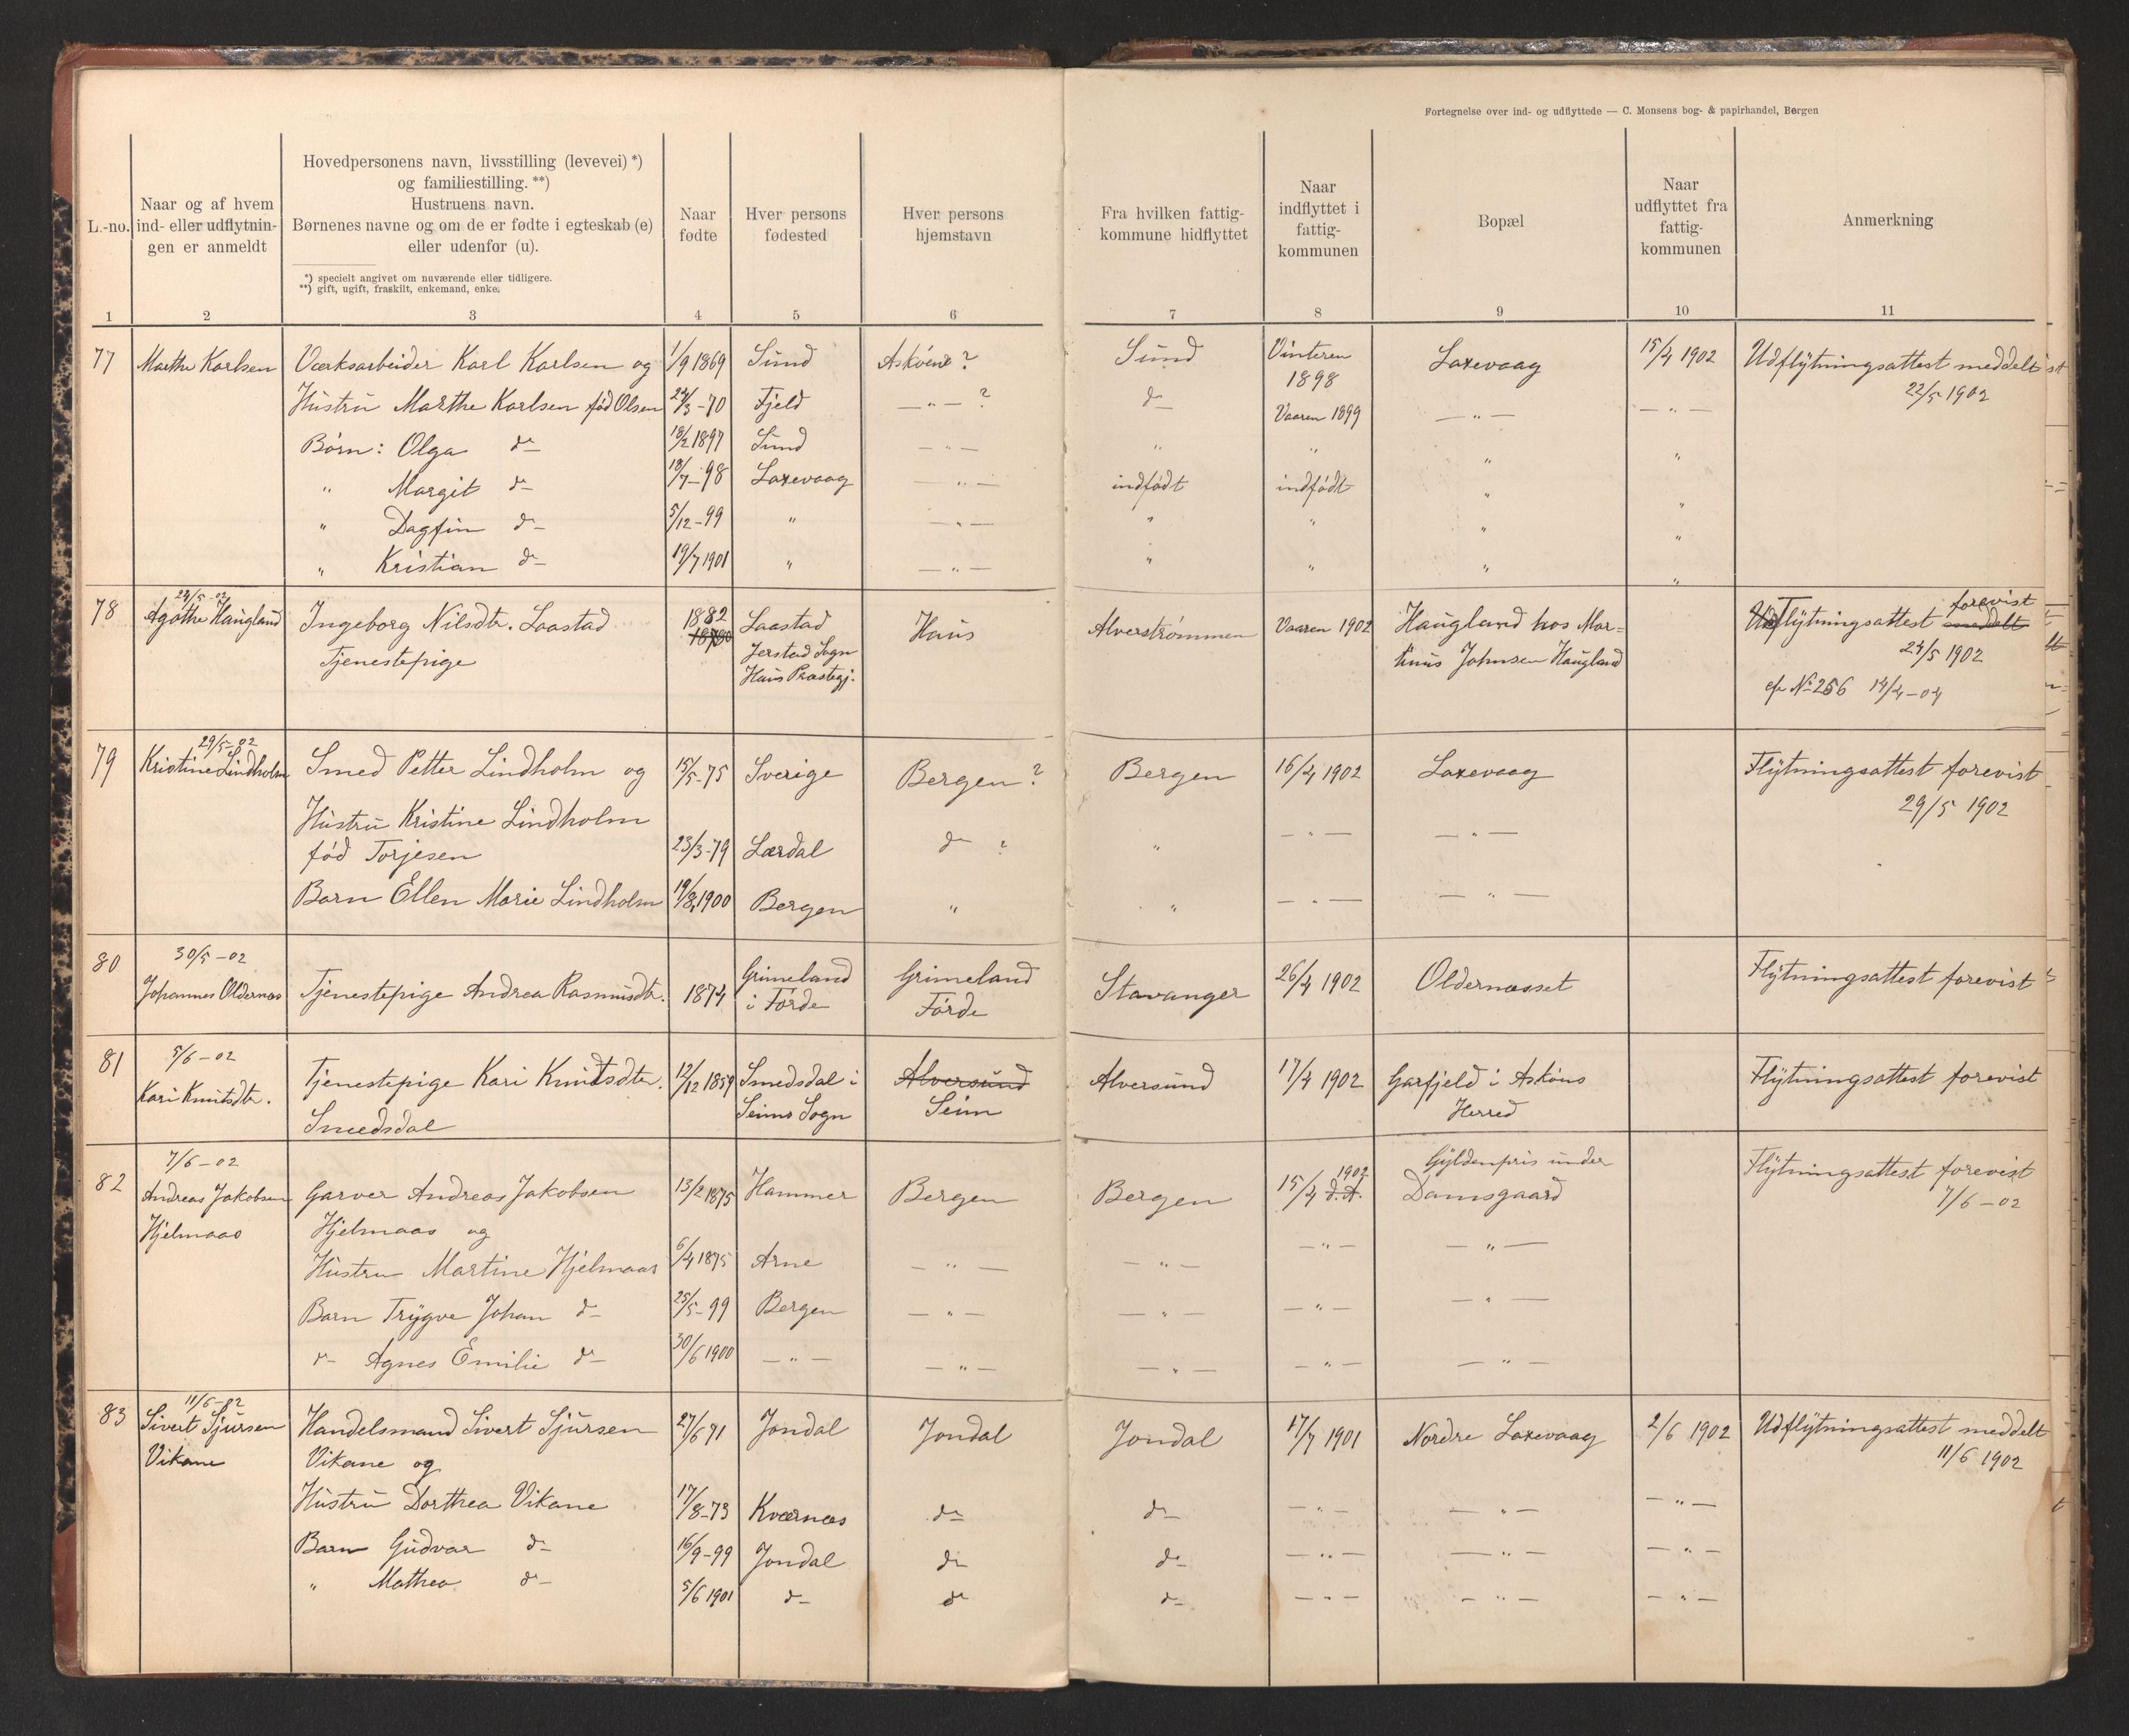 Fortegnelse over ind- og udflyttede — C. Monsens bog- & papirhandel, Bergen
L.-no.
Naar og af hvem
ind- eller udflytnin-
gen er anmeldt
Hovedpersonens navn, livsstilling (levevei) *)
og familiestilling. **)
Hustruens navn.
Børnenes navne og om de er fødte i egteskab (e)
eller udenfor (u).
*) specielt angivet om nuværende eller tidligere.
**) gift, ugift, fraskilt, enkemand, enke.
Naar
fødte
Hver persons
fødested
Hver persons
hjemstavn
Fra hvilken fattig-
kommune hidflyttet
Naar
indflyttet i
fattig-
kommunen
Bopæl
Naar
udflyttet fra
fattig-
kommunen
Anmerkning
1 2 3 4 5 6 7 8 9 10 11
77 Marthe Karlsen Værksarbeider Karl Karlsen og 1/9 1869 Sund Askøene ? Sund Vinteren 1898 Laxevaag 15/4 1902 Udflytningsattest meddelt
22/5 1902
Hustru Marthe Karlsen fød Olsen 24/3-70 Fjeld — " — ? d— Vaaren 1899 — " — — " —
Børn: Olga d— 18/2 1897 Sund — " — " " " "
" Margit d— 18/7-98 Laxevaag — " — indfødt indfødt " "
" Dagfin d— 5/12-99 " — " — " " " "
" Kristian d— 19/7 1901 " — " — " " " "
78 24/5-02 Agathe Haugland Ingeborg Nilsdtr. Laastad 1882 Laastad Haus Alverstrømmen Vaaren 1902 Haugland hos Mar- Flytningsattest meddelt forevist
Tjenestepige Jerstad Sogn tinus Johnsen Haugland 24/5 1902
Haus Præstegj. cfr No 256 14/4-04
79 29/5-02 Kristine Lindholm Smed Petter Lindholm og 15/5-75 Sverige Bergen ? Bergen 16/4 1902 Laxevaag Flytningsattest forevist
29/5 1902
Hustru Kristine Lindholm — " — — " —
fød Torjesen 23/3-79 Lærdal d— ? "
Barn Ellen Marie Lindholm 19/8 1900 Bergen " " — " — — " —
80 30/5-02
Johannes Oldernæs Tjenestepige Andrea Rasmusdtr. 1874 Grimeland i Førde Grimeland Førde Stavanger 26/4 1902 Oldernæsset Flytningsattest forevist
81 5/6-02
Kari Knutsdtr. Tjenestepige Kari Knutsdtr. 12/12 1859 Smedsdal i Alversund Alversund 17/4 1902 Garfjeld i Askøns Flytningsattest forevist
Smedsdal Seims Sogn Seim Herred
82 7/6-02
Andreas Jakobsen Garver Andreas Jakobsen 13/2 1875 Hammer Bergen Bergen 15/4 d.A. 1902 Gyldenpris under Damsgaard Flytningsattest forevist
7/6-02
Hjelmaas Hjelmaas og
Hustru Martine Hjelmaas 6/4 1875 Arne — " — — " — — " — — " —
Barn Trygve Johan d— 25/5-99 Bergen — " — — " — — " — — " —
d— Agnes Emilie d— 30/6 1900 — " — — " — — " — — " — — " —
83 11/6-02
Sivert Sjursen Handelsmand Sivert Sjursen 27/6 71 Jondal Jondal Jondal 17/7 1901 Nordre Laxevaag 2/6 1902 Udflytningsattest meddelt
11/6 1902
Vikane Vikane og
Hustru Dorthea Vikane 17/8-73 Kværnæs d— d— — " — — " — — " —
Barn Gudvar d— 16/9-99 Jondal d— d— — " — — " — — " —
" Mathea d— 5/6 1901 d— d— d— — " — — " — — " —